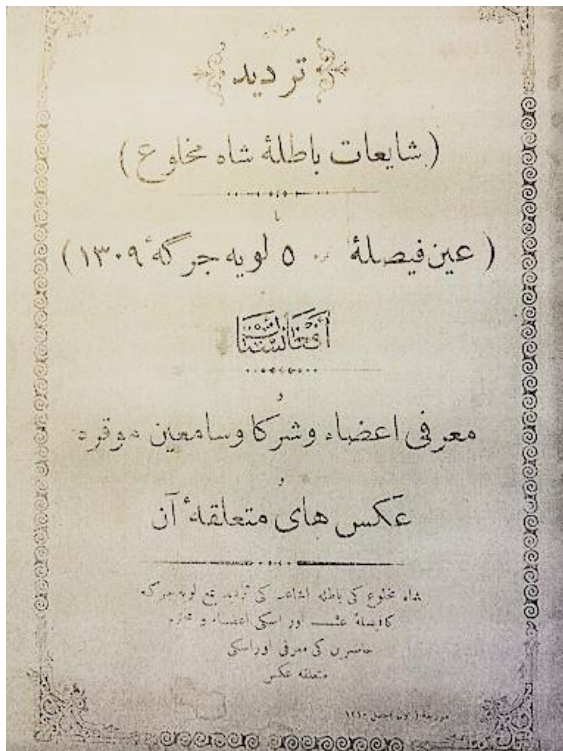 هوالله
تردید
(شایعات باطلۀ شاه مخلوع)
با
(عین فیصلۀ ٥ لویه جرگۀ ١٣٠٩)
افغانستان
و
معرفی اعضاء و شرکا و سامعین موقره
و
عکس های متعلقۀ آن
شاه مخلوع کی باطله اشاعه کی تردید مع لویه جرگه
اور اسکی اعضاء و
حاضرین کی معرفی اور اسکی
متعلقه عکس